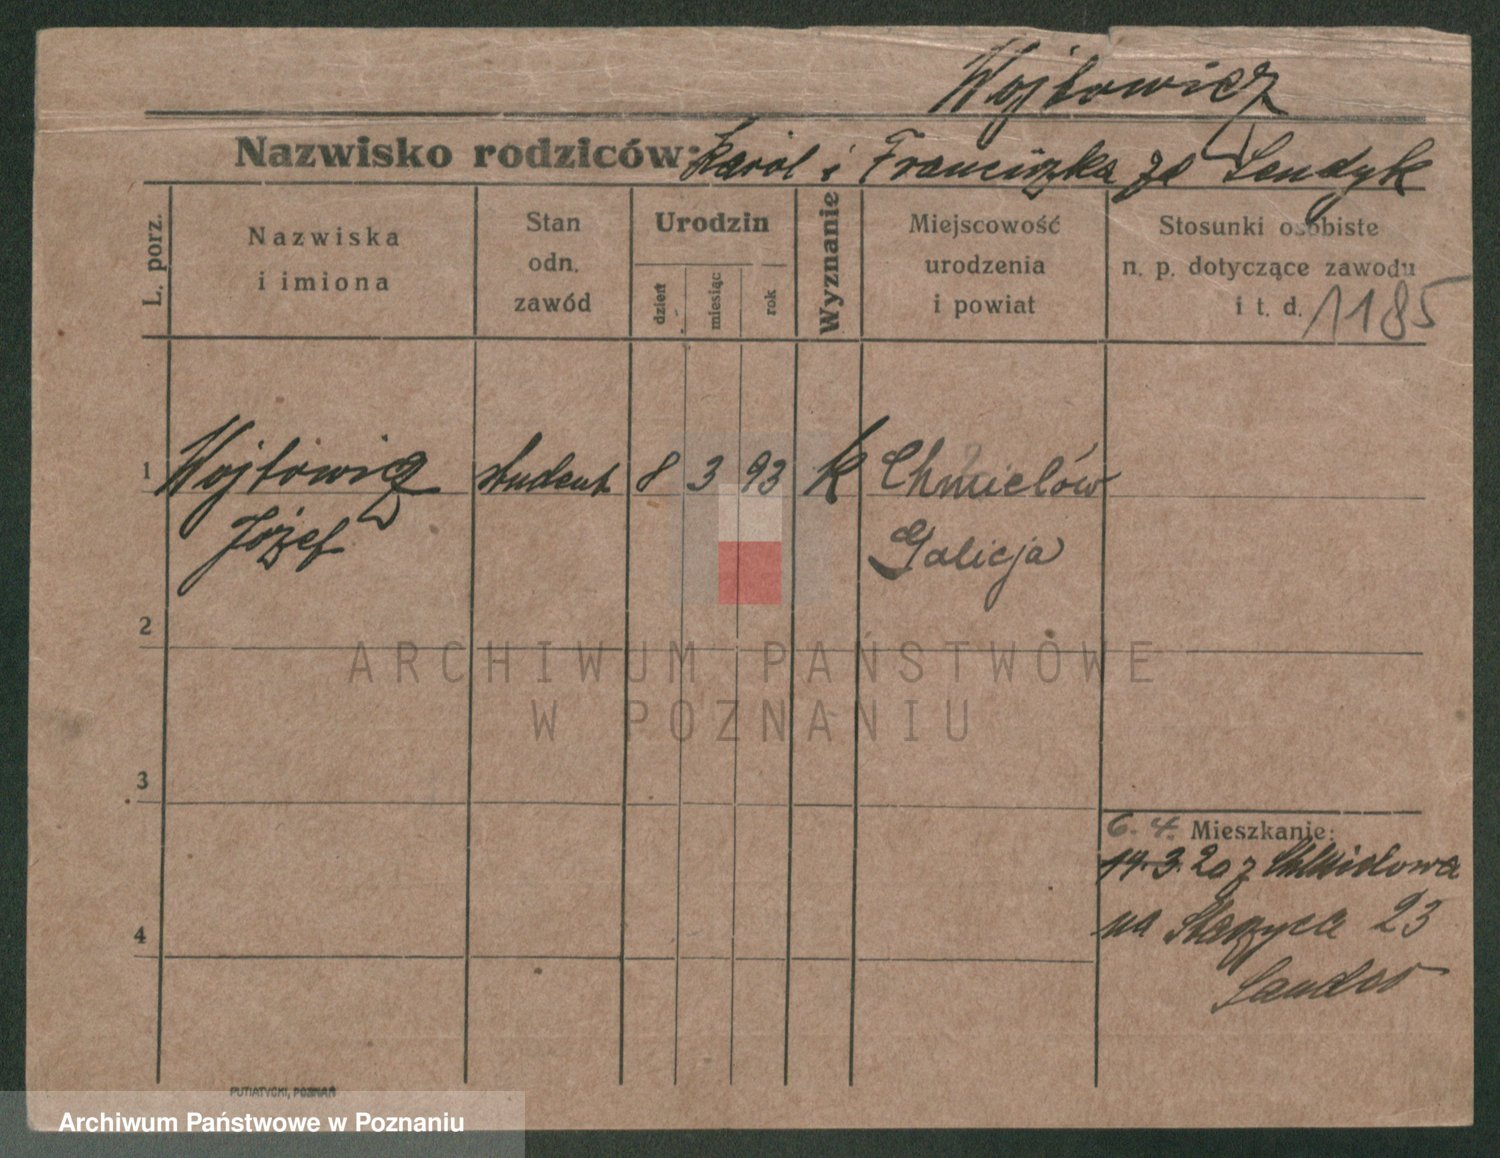 Wojtowicz
Nazwisko rodziców: Karol i Franciszka zd Sendyk
L. porz.
Nazwiska
i imiona
Stan
odn.
zawód
Urodzin
dzień
miesiąc
rok
Wyznanie
Miejscowość
urodzenia
i powiat
Stosunki osobiste
n. p. dotyczące zawodu
i t. d. 1185
1 Wojtowicz student 8 3 93 k Chmielów
Józef Galicja
2
ARCHIWUM PAŃSTWOWE
W POZNANIU
3
6. 4. Mieszkanie:
14.3.20 z
na 23
4
PUTIATYCKI, POZNAŃ
Archiwum Państwowe w Poznaniu